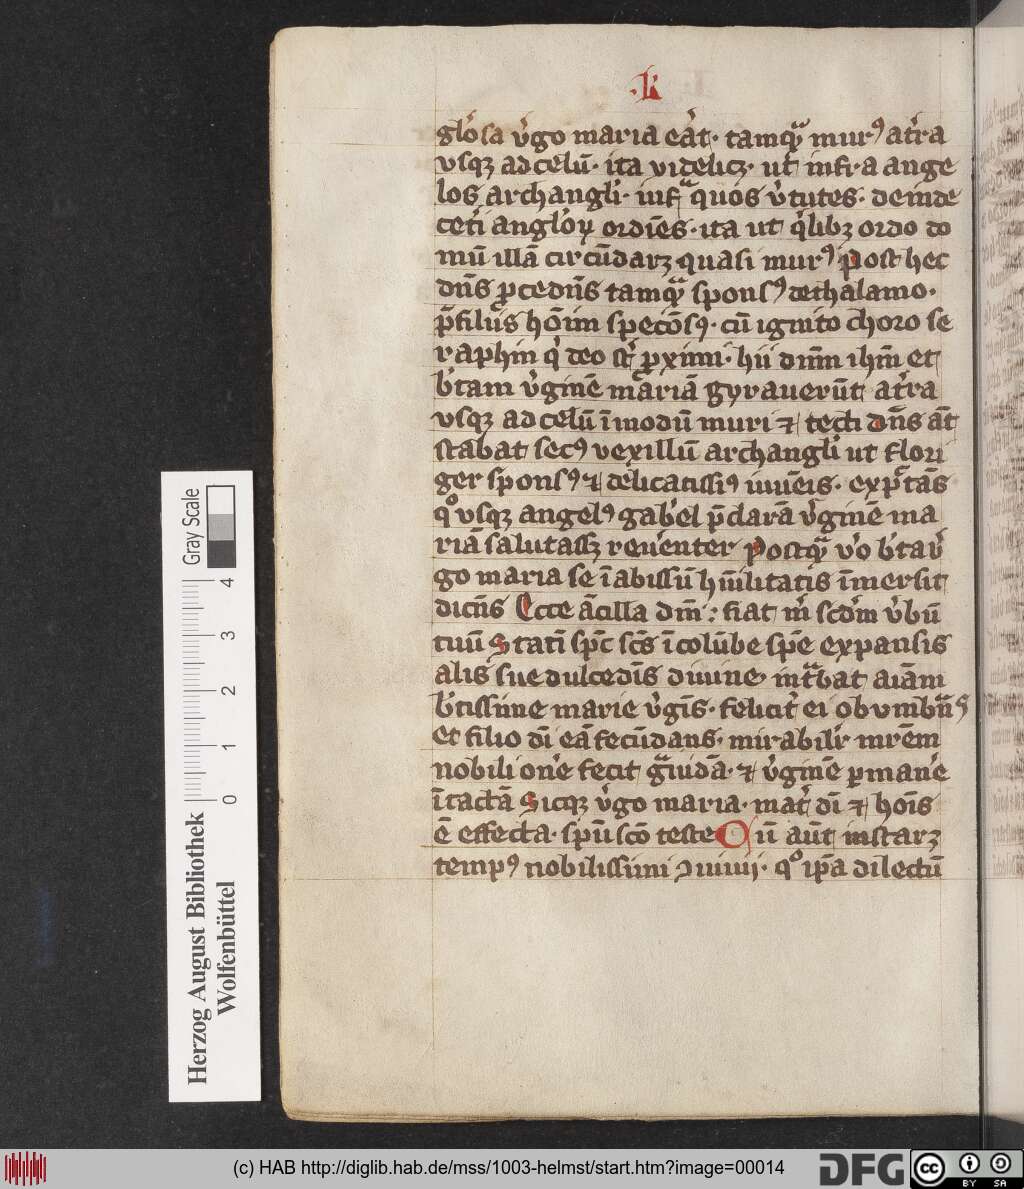 ·L·
glo᷑sa v᷑go maria eāt· tamqᷓ murꝰ at᷑ra
vsqꝫ ad celū· ita videlicꝫ· ut infͬa ange
los archangl᷑i· infᷓ quos v᷑tutes· deinde
cet᷑i anglo᷑ꝝ ordīes· ita ut q᷑libꝫ ordo do
mū illā circūdarꝫ quasi murꝰ post hec
dn̄s ꝓcedn̄s tamqᷓ sponsꝰ de thalamo·
p̄ filijs ho᷑im speco᷑sꝰ· cū ignito choro se
raphin qͥ deo st᷑ ꝓximi· hii dnm̄ ihm̄ et
b᷑tam v᷑ginē mariā gyrauerūt at᷑ra
vsqꝫ ad celū ī modū muri ⁊ tecti dn̄s āt
stabat secꝰ vexillū archangl᷑i ut flori
ger sponsꝰ ⁊ delicatissiꝰ iuuēis· expͨtās
qͦ usqꝫ angelꝰ gab᷑el p̄clarā v᷑ginē ma
riā salutassꝫ reu᷑enter Postqᷓ v᷑o b᷑ta v᷑
go maria se ī abissū hūilitatis īmersit
dicn̄s Ecce ācilla dn̄i: fiat m᷑ scd̄m v᷑bū
tuū Statī sp̄c sc̄s ī colūbe sp̄e expansis
alis sue dulcedīs diuine· intᷓbat aīam
b᷑tissime marie v᷑gīs· felicit᷑ ei obumbn̄ᷓs
et filio dī eā fecūdans· mirabil᷑r mr̄em
nobili on᷑e fecit gᷓuidā· ⁊ v᷑ginē ꝑman᷑e
ītactā Sicqꝫ v᷑go maria· mat᷑ dī ⁊ hoīs
ē effecta· sp̄u sc̄o teste Cū aūt instarꝫ
tempꝰ nobilissimi ꝯuiuij· qͦ ip̄a dilectū
Herzog August Bibliothek
Wolfenbüttel
0 1 2 3 4
Gray Scale
(c) HAB http://diglib.hab.de/mss/1003-helmst/start.htm?image=00014
DFG
cc BY SA